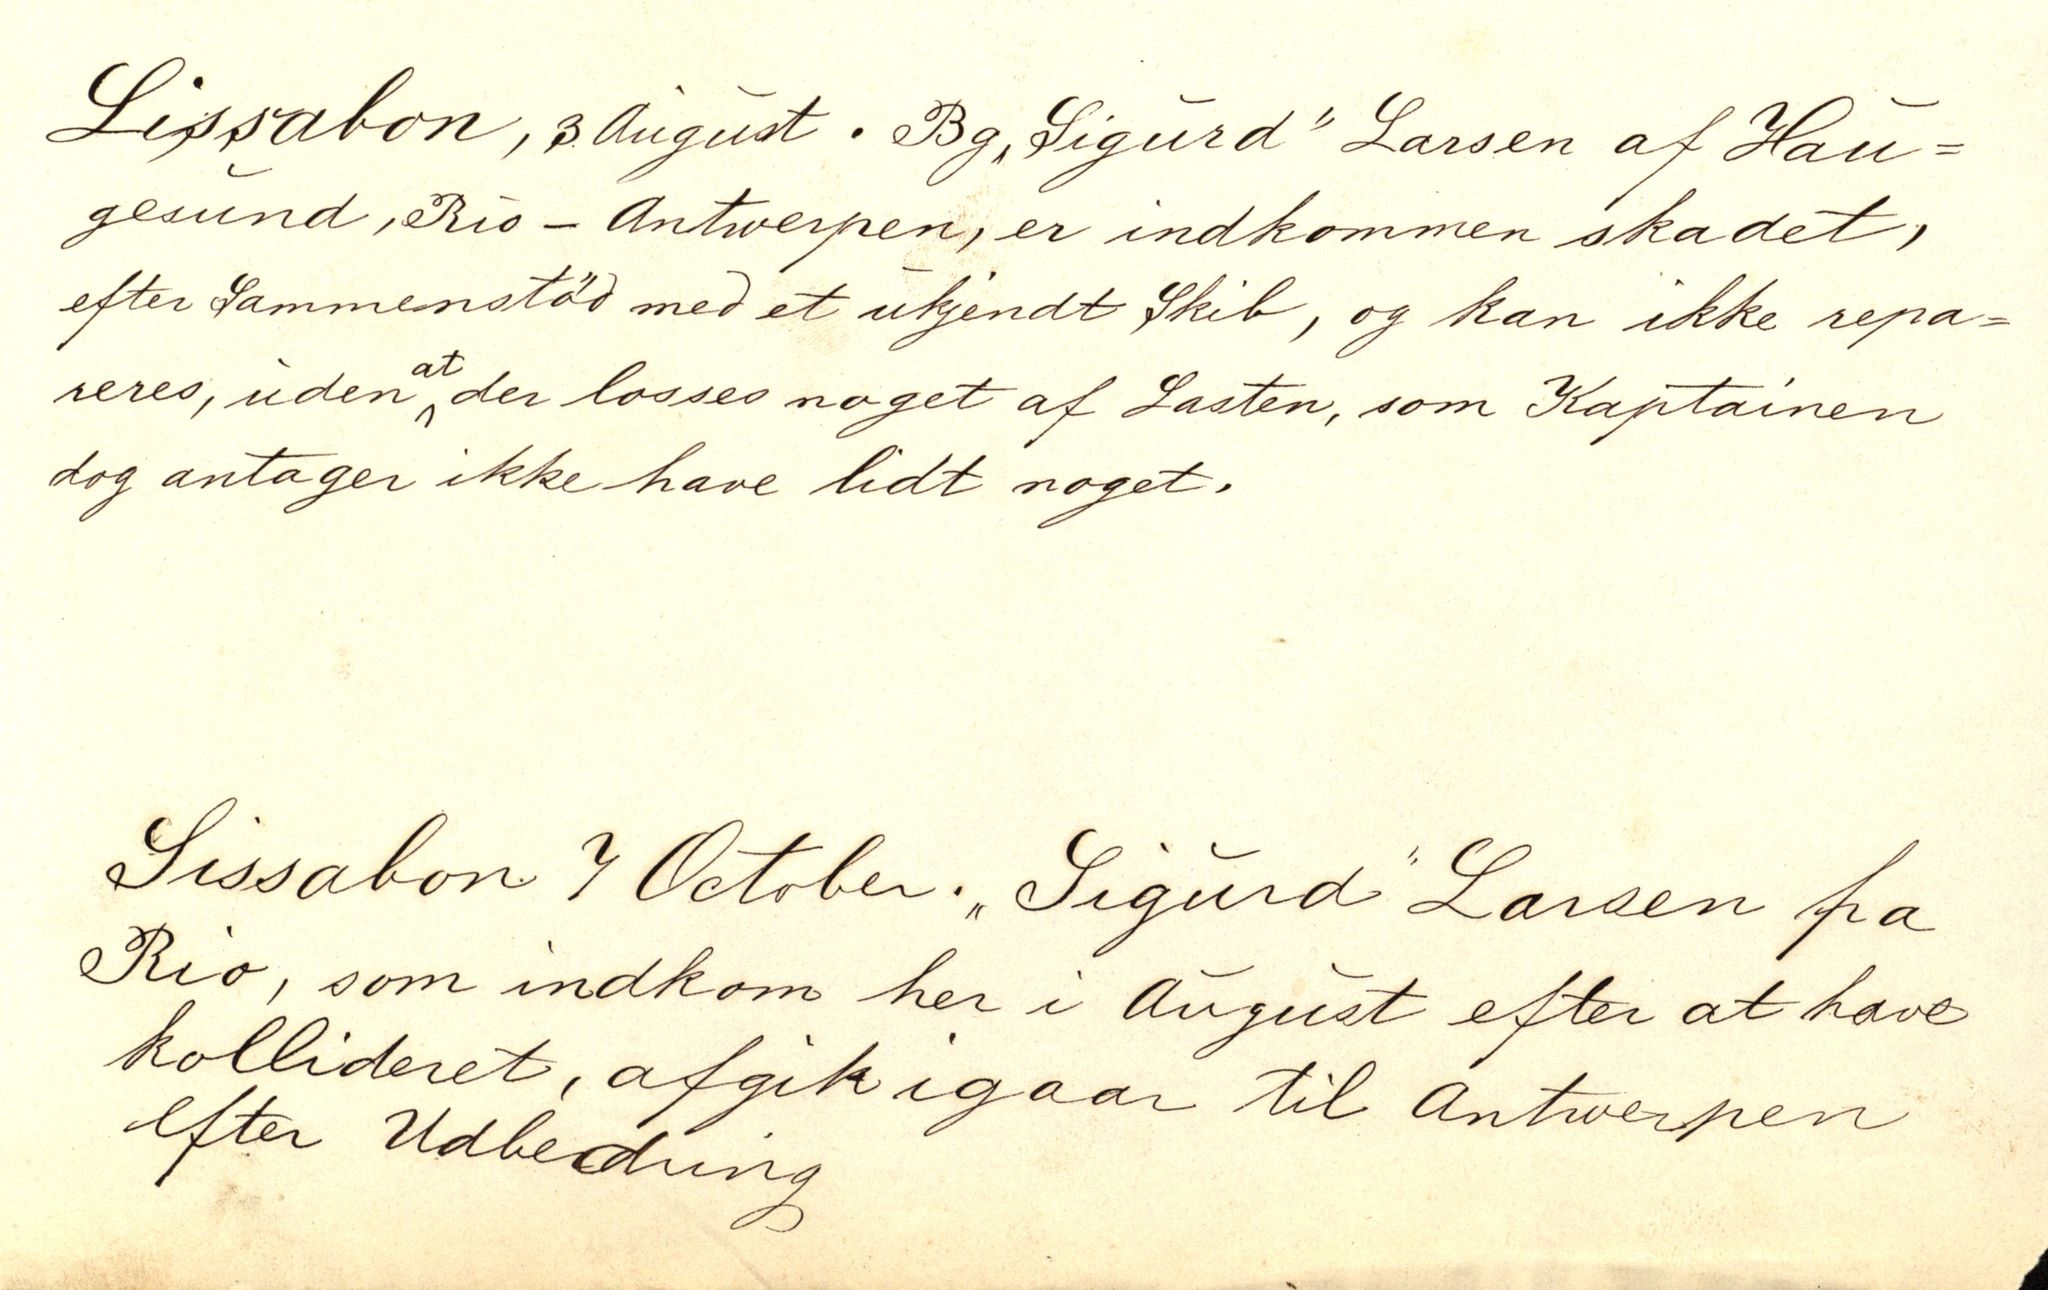 Lissabon, 3 August. Bg. „Sigurd" Larsen af Hau=
gesund, Rio - Antwerpen, er indkommen skadet,
efter Sammenstöd med et ukjendt Skib, og kan ikke repa=
reres, uden at der losses noget af Lasten, som Kaptainen
dog antager ikke have lidt noget.
Lissabon 7 October. „Sigurd" Larsen fra
Rio, som indkom her i August efter at have
kollideret, afgik igaar til Antwerpen
efter Udbedring